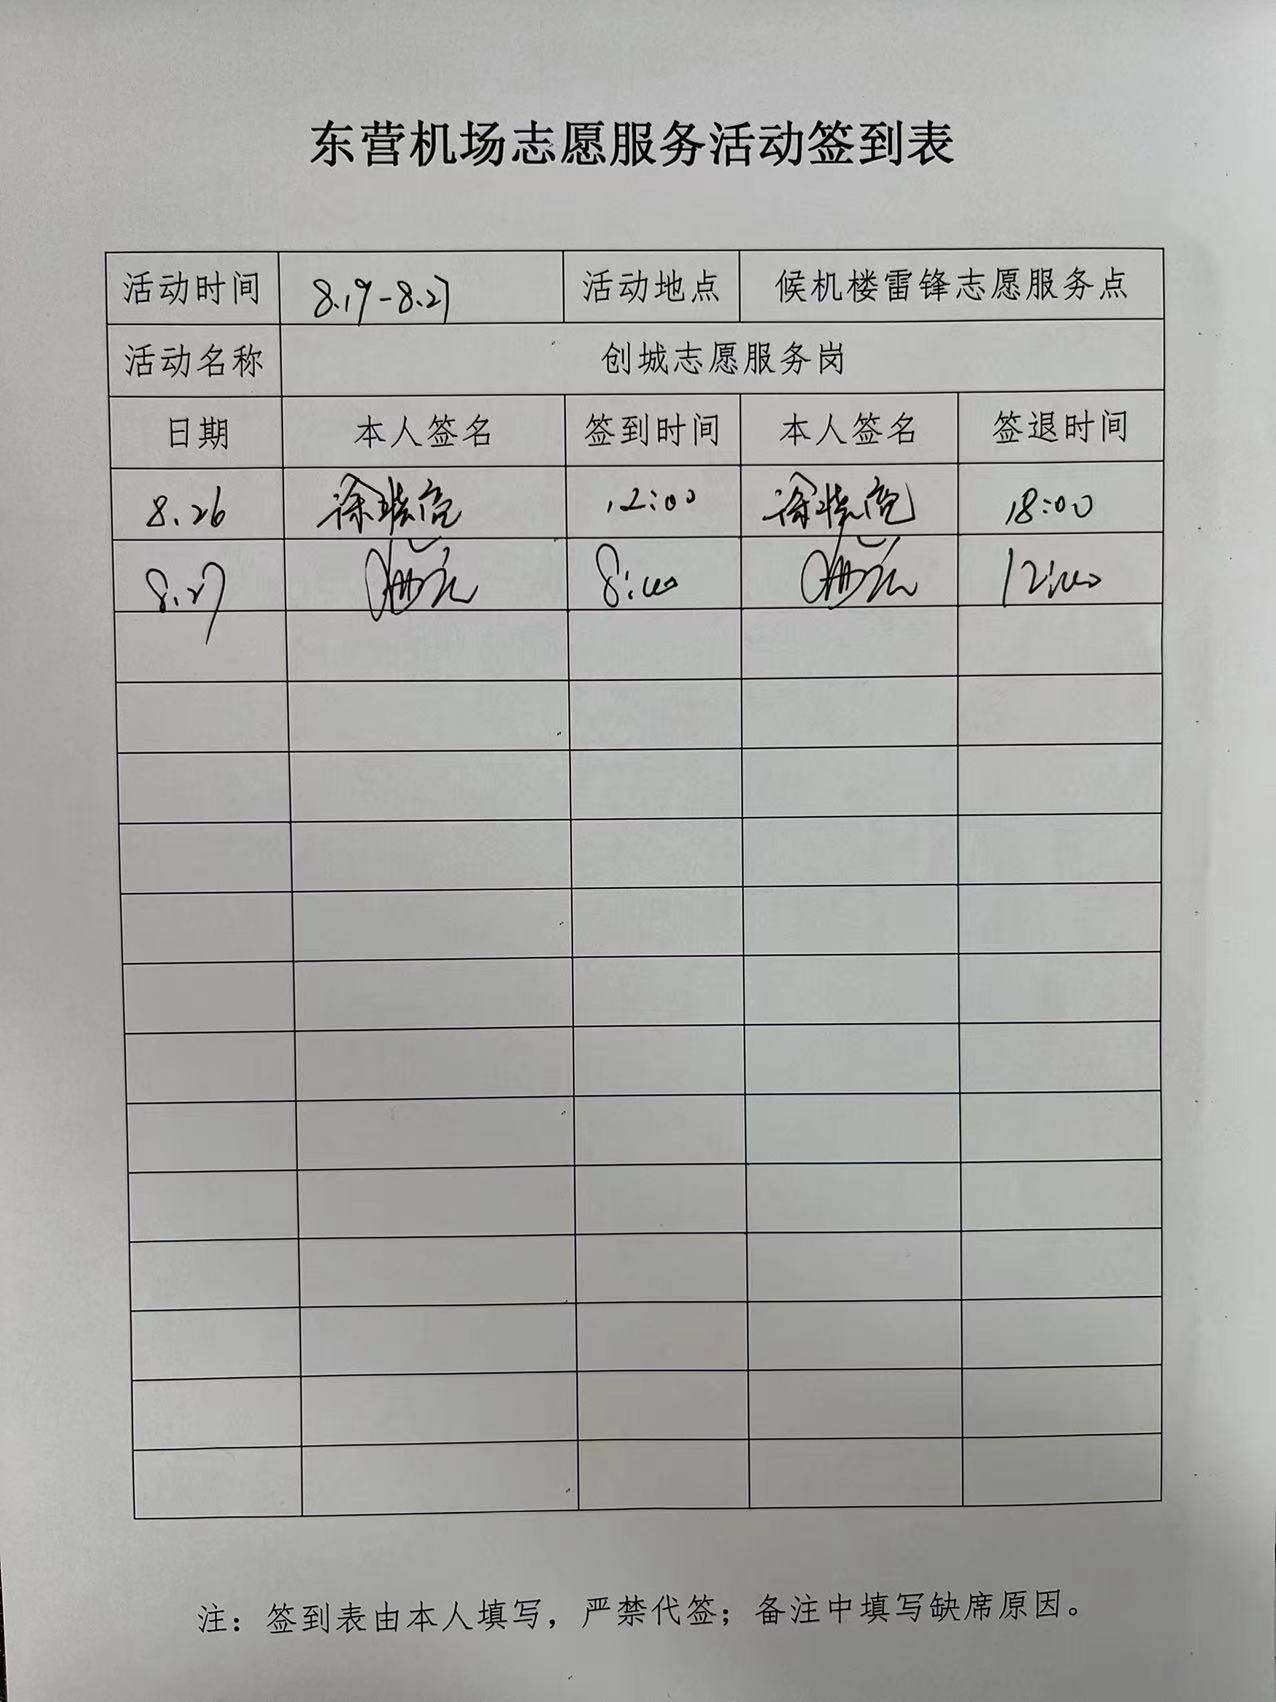 东营机场志愿服务活动签到表
活动时间 8.19-8.27 活动地点 候机楼雷锋志愿服务点
活动名称 创城志愿服务岗
日期 本人签名 签到时间 本人签名 签退时间
8.26 12:00 18:00
8.27 8:00 12:00
注：签到表由本人填写，严禁代签；备注中填写缺席原因。